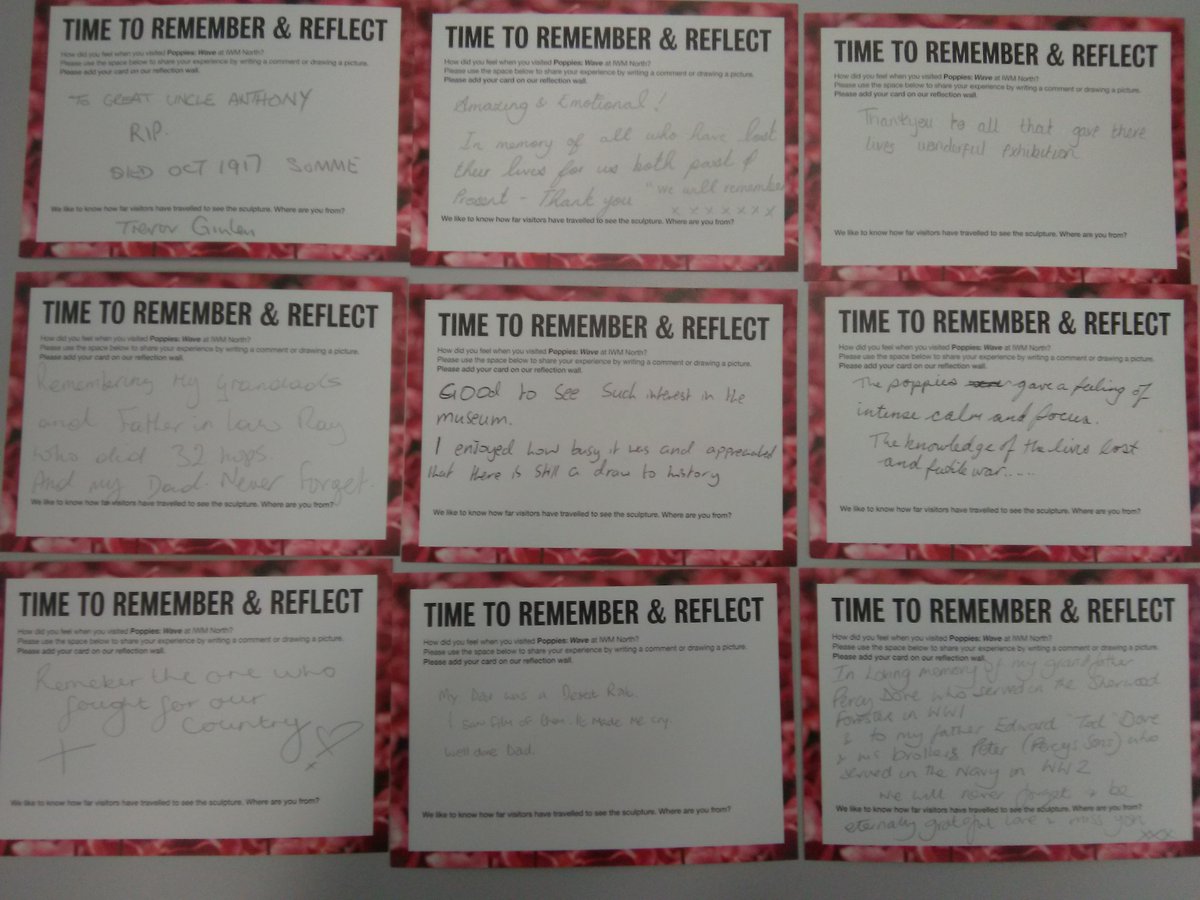 TIME TO REMEMBER & REFLECT
How did you feel when you visited Poppies: Wave at IWM North?
Please use the space below to share your experience by writing a comment or drawing a picture.
Please add your card on our reflection wall.
TO GREAT UNCLE ANTHONY
RIP.
DIED OCT 1917 SOMME
We like to know how far visitors have travelled to see the sculpture. Where are you from?
Trevor
TIME TO REMEMBER & REFLECT
How did you feel when you visited Poppies: Wave at IWM North?
Please use the space below to share your experience by writing a comment or drawing a picture.
Please add your card on our reflection wall.
Amazing & Emotional!
In memory of all who have lost
their lives for us both past &
Present - Thank you "we will remember
x x x x x x x
We like to know how far visitors have travelled to see the sculpture. Where are you from?
TIME TO REMEMBER & REFLECT
How did you feel when you visited Poppies: Wave at IWM North?
Please use the space below to share your experience by writing a comment or drawing a picture.
Please add your card on our reflection wall.
Thankyou to all that gave there
lives wonderful exhibition
We like to know how far visitors have travelled to see the sculpture. Where are you from?
TIME TO REMEMBER & REFLECT
How did you feel when you visited Poppies: Wave at IWM North?
Please use the space below to share your experience by writing a comment or drawing a picture.
Please add your card on our reflection wall.
Remembering My Grandads
and Father in law Ray
who did 32 hops.
And my Dad. Never Forget.
We like to know how far visitors have travelled to see the sculpture. Where are you from?
TIME TO REMEMBER & REFLECT
How did you feel when you visited Poppies: Wave at IWM North?
Please use the space below to share your experience by writing a comment or drawing a picture.
Please add your card on our reflection wall.
Good to see such interest in the
museum.
I enjoyed how busy it was and appreciated
that there is still a draw to history
We like to know how far visitors have travelled to see the sculpture. Where are you from?
TIME TO REMEMBER & REFLECT
How did you feel when you visited Poppies: Wave at IWM North?
Please use the space below to share your experience by writing a comment or drawing a picture.
Please add your card on our reflection wall.
The poppies gave a feeling of
intense calm and focus.
The knowledge of the lives lost
and futile war....
We like to know how far visitors have travelled to see the sculpture. Where are you from?
TIME TO REMEMBER & REFLECT
How did you feel when you visited Poppies: Wave at IWM North?
Please use the space below to share your experience by writing a comment or drawing a picture.
Please add your card on our reflection wall.
Remeker the one who
fought for our
country
We like to know how far visitors have travelled to see the sculpture. Where are you from?
TIME TO REMEMBER & REFLECT
How did you feel when you visited Poppies: Wave at IWM North?
Please use the space below to share your experience by writing a comment or drawing a picture.
Please add your card on our reflection wall.
My Dad was a Desert Rat.
I saw film of them. It made me cry.
Well done Dad.
We like to know how far visitors have travelled to see the sculpture. Where are you from?
TIME TO REMEMBER & REFLECT
How did you feel when you visited Poppies: Wave at IWM North?
Please use the space below to share your experience by writing a comment or drawing a picture.
Please add your card on our reflection wall.
In Loving memory of my grandfather
Percy Dore who served in the Sherwood
Foresters in WW1
& to my father Edward Ted Dore
& his brothers Peter (Percys Sons) who
served in the Navy in WW2
We will never forget & be
We like to know how far visitors have travelled to see the sculpture. Where are you from?
eternally grateful Love & miss you
xxx